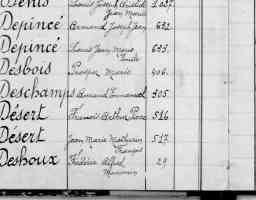 Denis Charles Joseph Aristide 1.037.
Jean Marie
Depincé Armand Joseph Jean 682.
Depincé Louis Jean Marie 603.
Emile
Desbois Prosper Marie 406.
Deschamps Armand Emmanuel 305.
Désert Francois Arthur Pierre 516
Désert Jean Marie Mathurin 517.
François
Deshoux Frédéric Alfred 29